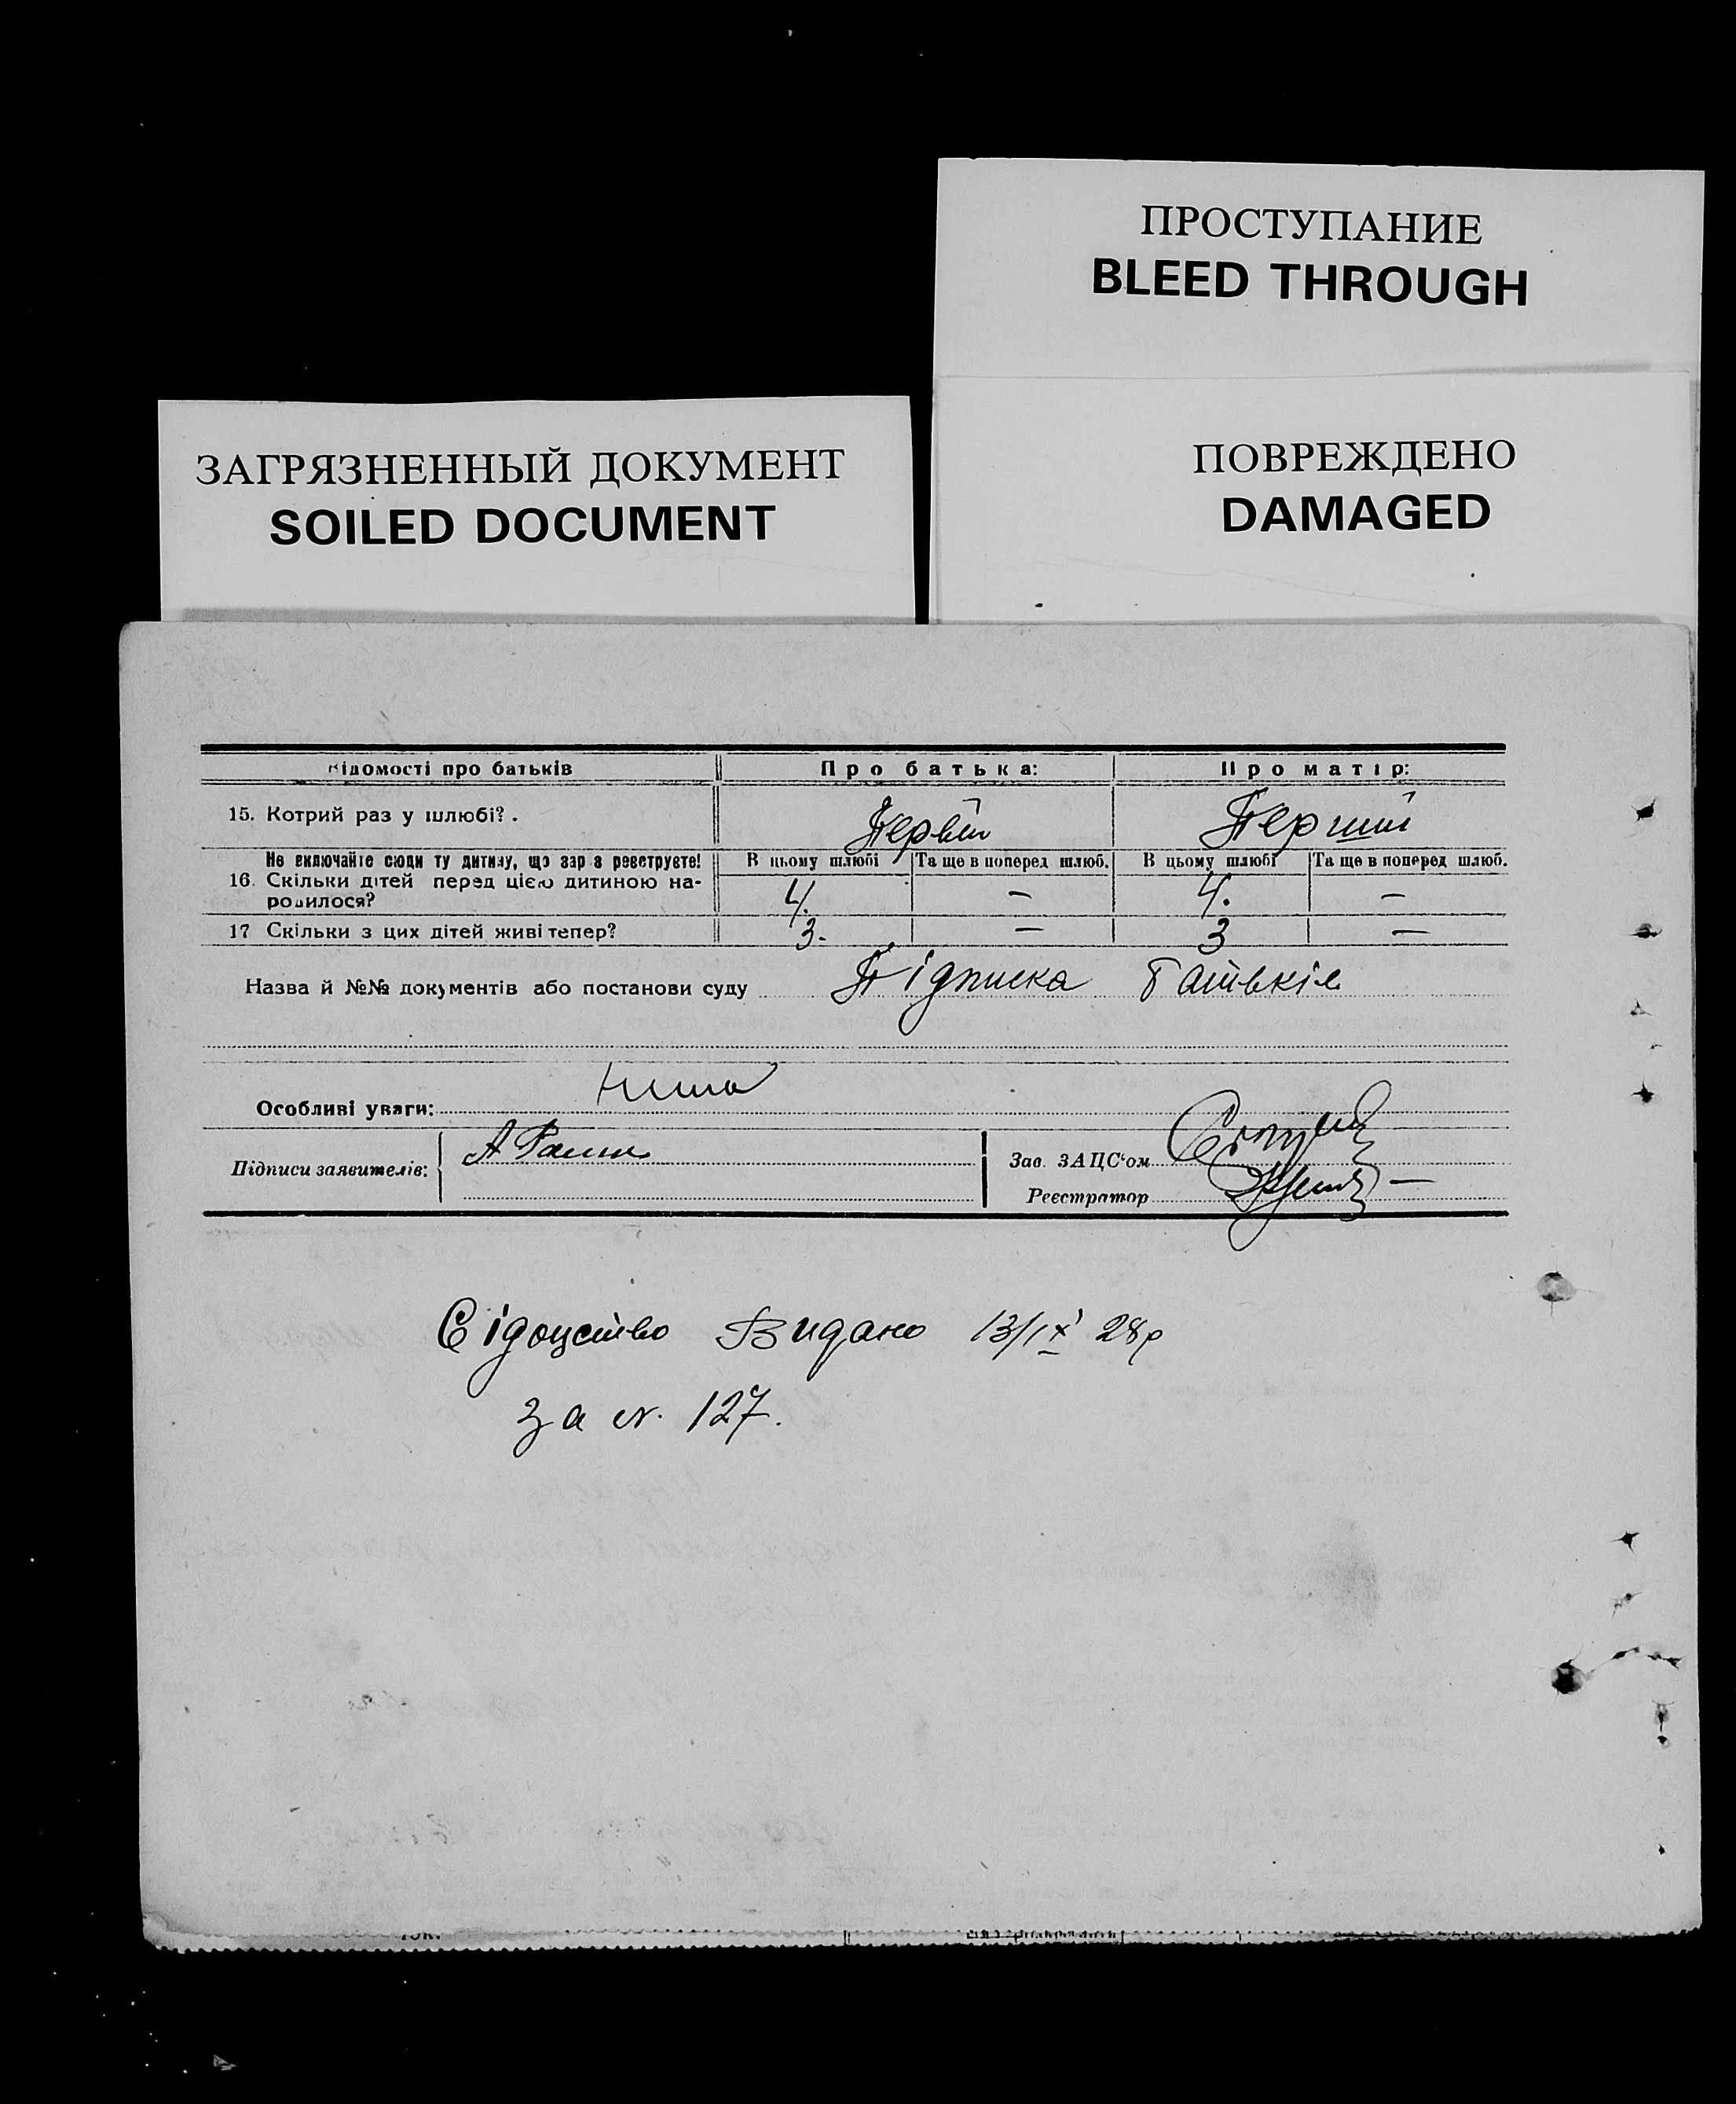 ПРОСТУПАНИЕ
BLEED THROUGH
ПОВРЕЖДЕНО
DAMAGED
ЗАГРЯЗНЕННЫЙ ДОКУМЕНТ
SOILED DOCUMENT
Відомості про батьків Про батька: Про матір:
15. Котрий раз у шлюбі? . Первій Перший
Не включайте сюди ту дитину, що зараз реєструєте! В цьому шлюбі Та ще в поперед шлюб. В цьому шлюбі Та ще в поперед шлюб.
16. Скільки дітей перед цією дитиною на-
родилося? 4. — 4. —
17 Скільки з цих дітей живі тепер? 3. — 3 —
Назва й №№ документів або постанови суду Підписка батьків
Особливі уваги:
Підписи заявителів: А
Зав. ЗАЦС‘ом
Реєстратор
Свідоцтво Видано 13/ІХ 28р
за N. 127.